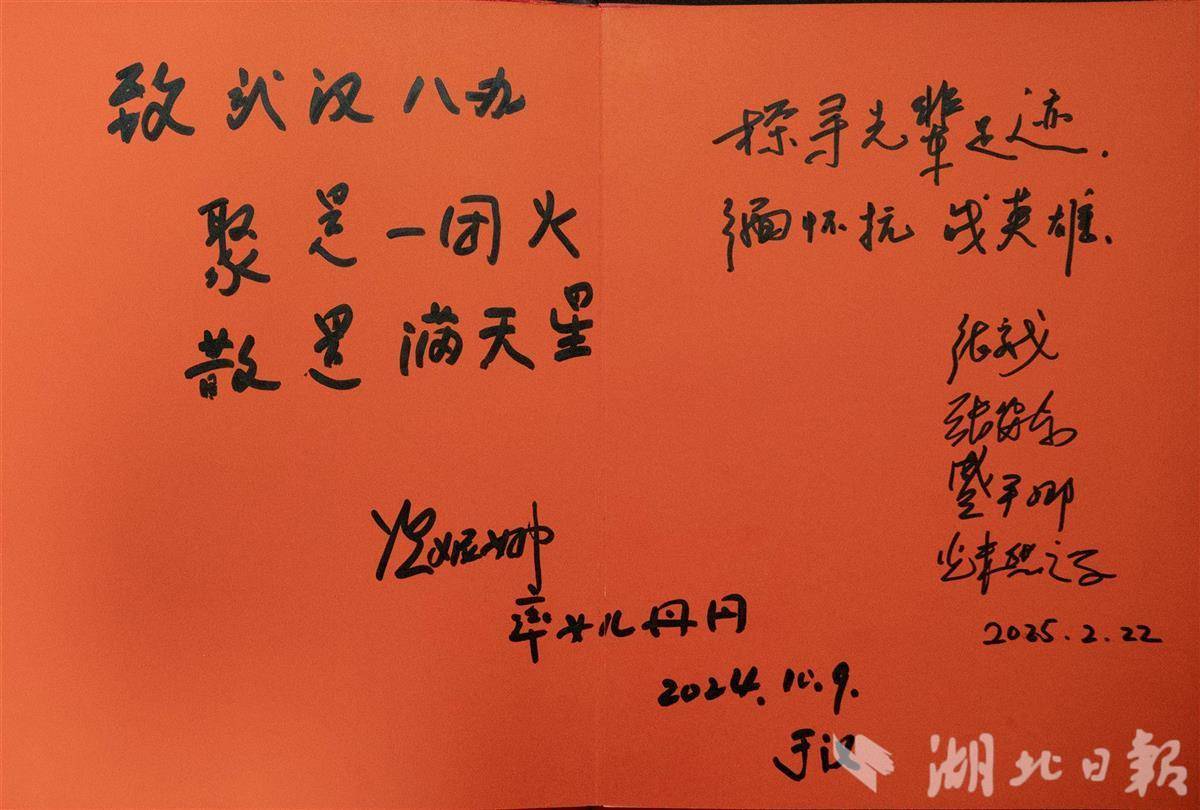 致武汉八办
聚是一团火
散是满天星
妮娜
率女儿丹丹
2024.10.9.
于汉
探寻先辈足迹.
缅怀抗战英雄.
张
张
2025.2.22
湖北日報